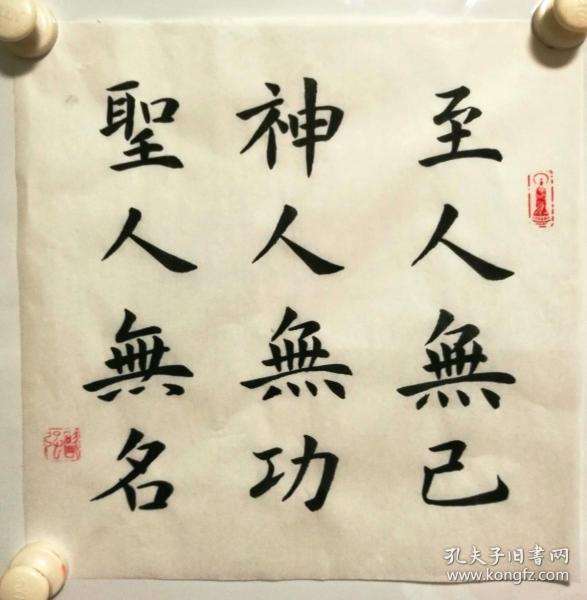 至人無己
神人無功
聖人無名
孔夫子旧书网
www.kongfz.com